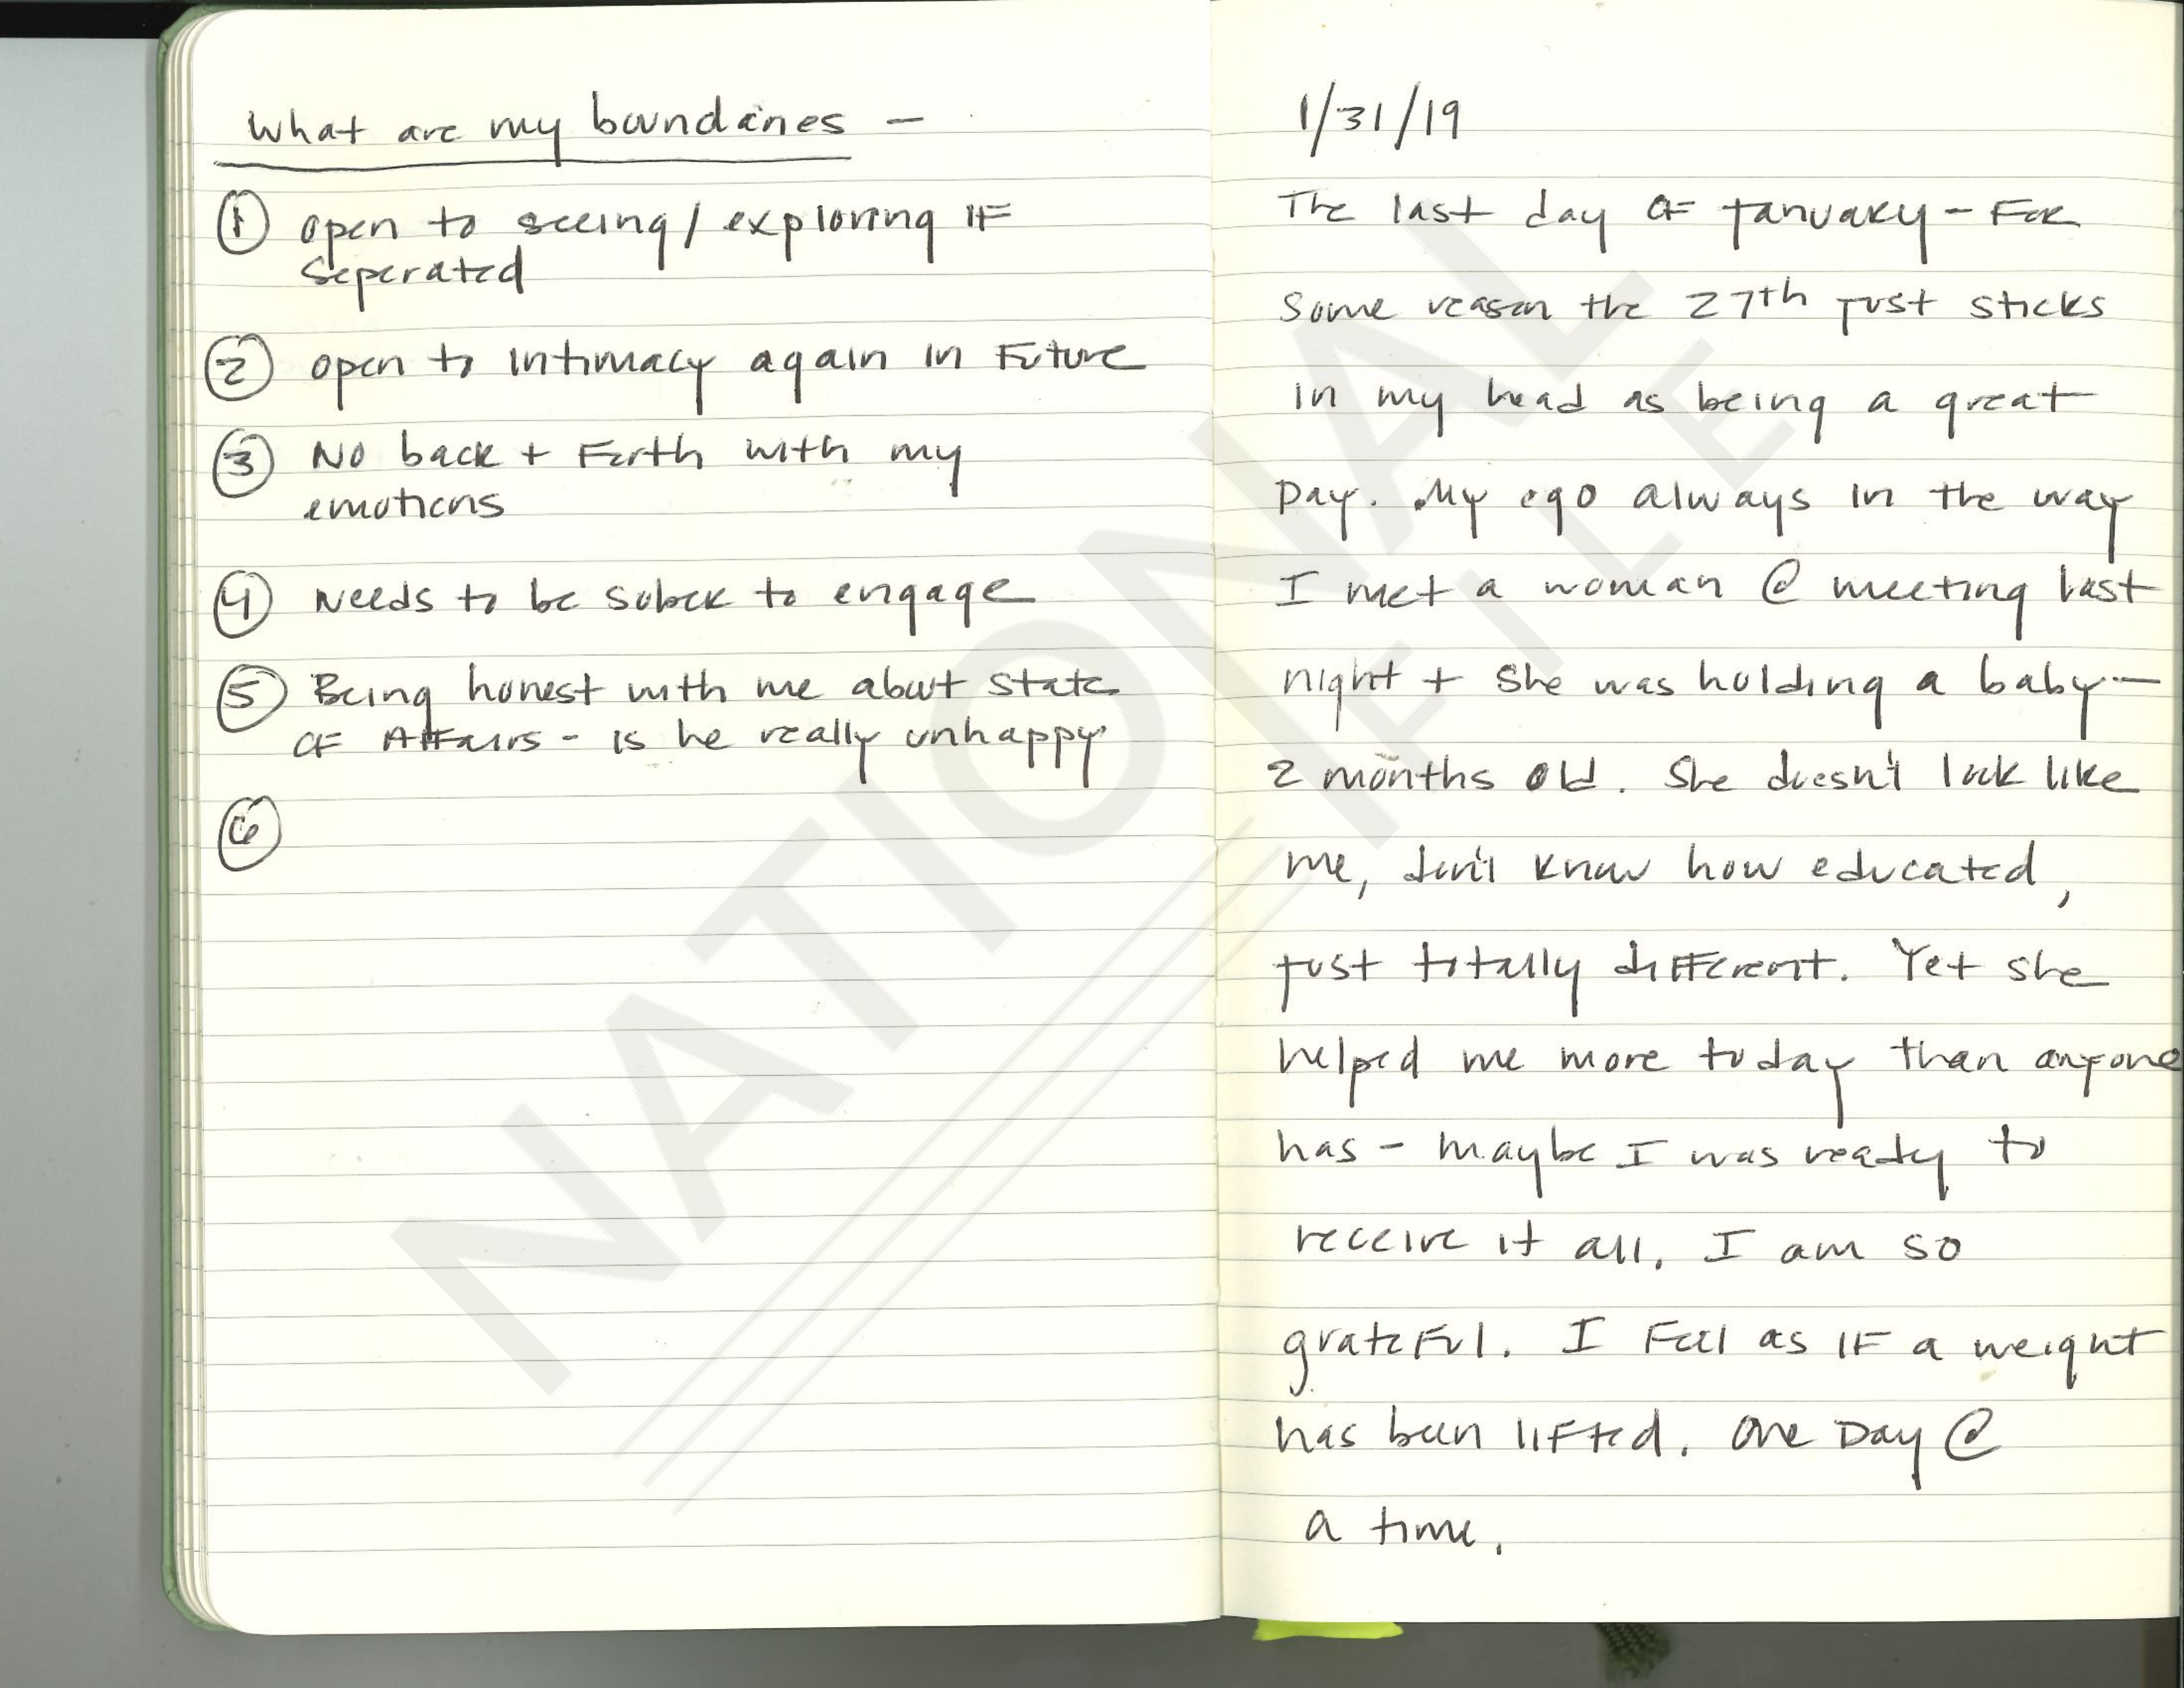 What are my boundaries -
① open to seeing / exploring IF
seperated
② open to intimacy again in Future
③ No back + Forth with my
emotions
④ Needs to be sober to engage
⑤ Being honest with me about state
OF AFFairs - is he really unhappy
⑥
1/31/19
The last day OF January - For
some reason the 27th just sticks
in my head as being a great
Day. My ego always in the way
I met a woman @ meeting last
night + she was holding a baby -
2 months old. She doesn't look like
me, don't know how educated,
just totally different. Yet she
helped me more today than anyone
has - maybe I was ready to
receive it all. I am so
grateful. I Feel as IF a weight
has been lifted. One Day @
a time.
NATIONAL
FILE